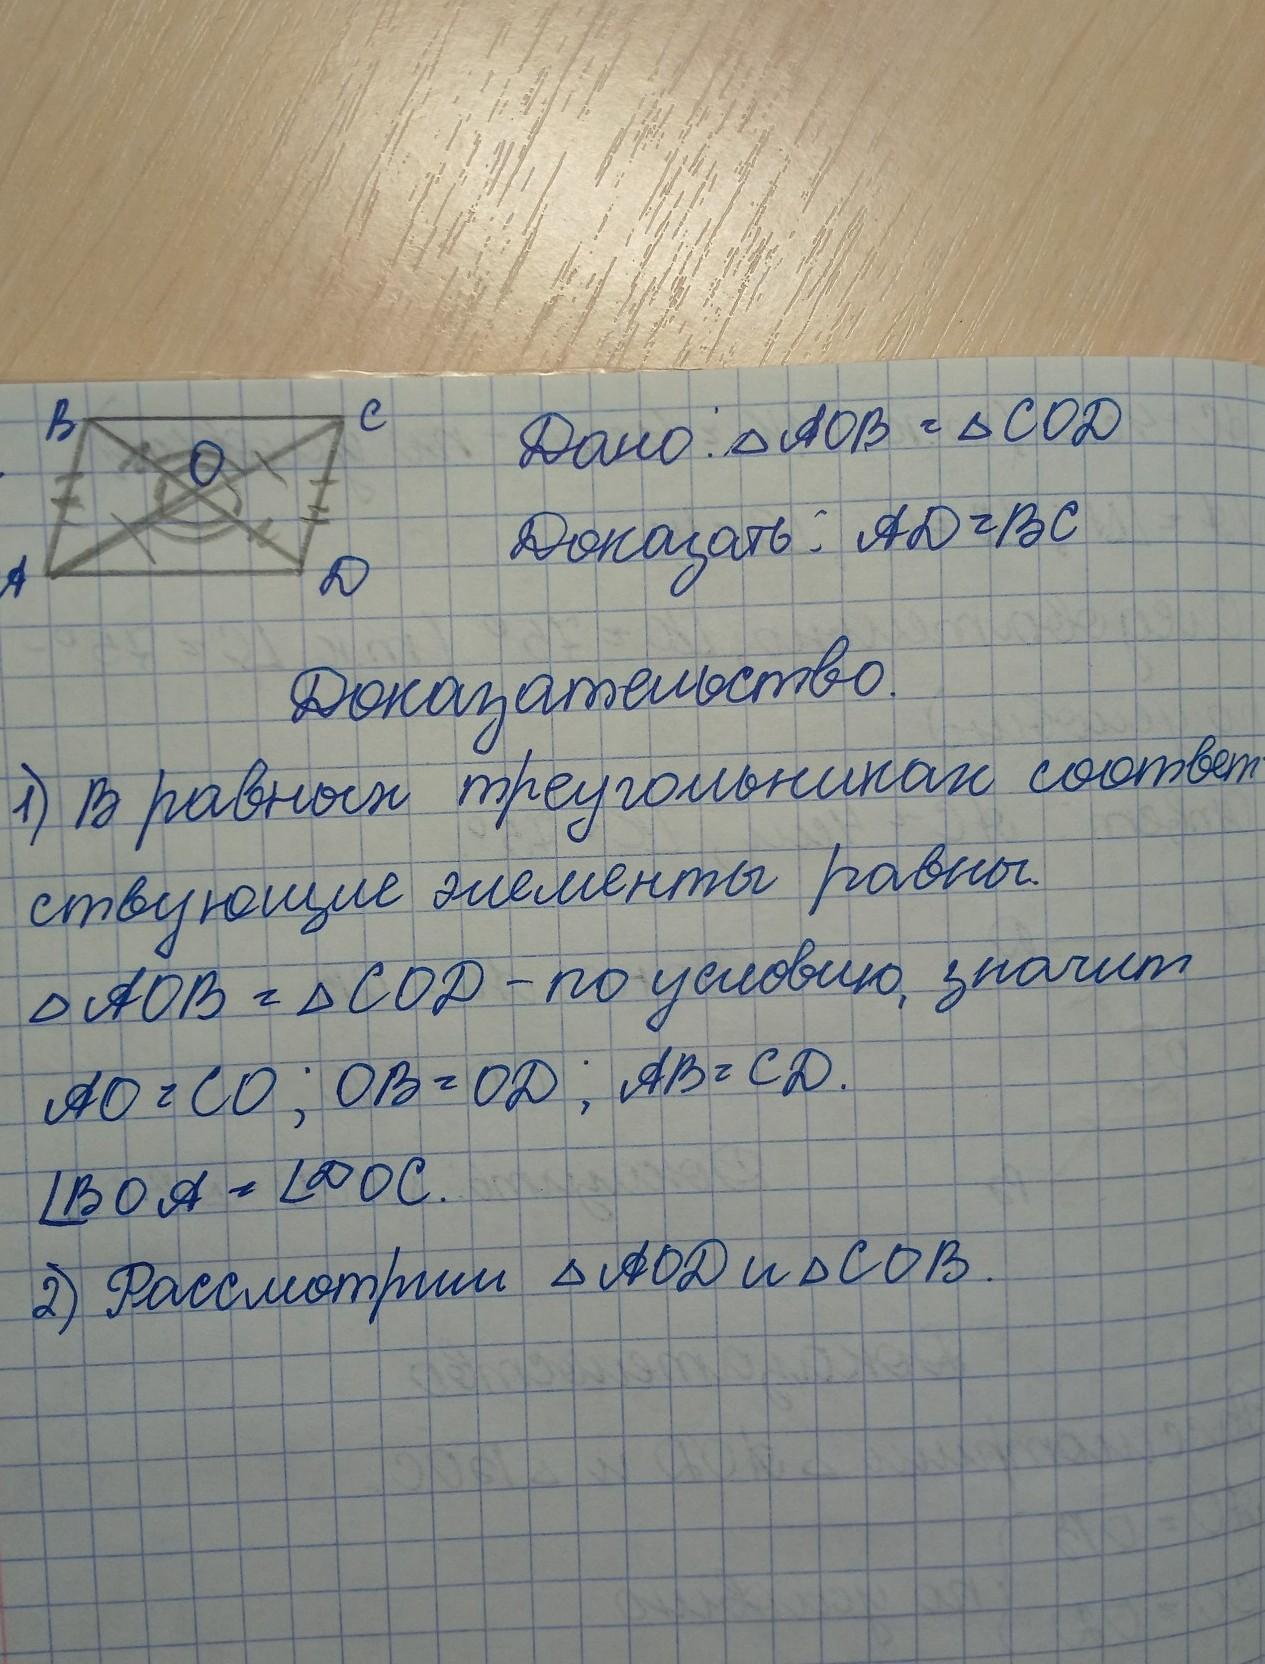 B C
O
A D
Дано: △AOB = △COD
Доказать: AD=BC
Доказательство.
1) В равных треугольниках соответ-
ствующие элементы равны.
△AOB = △COD – по условию, значит
AO=CO; OB=OD; AB=CD.
∠BOA = ∠DOC.
2) Рассмотрим △AOD и △COB.